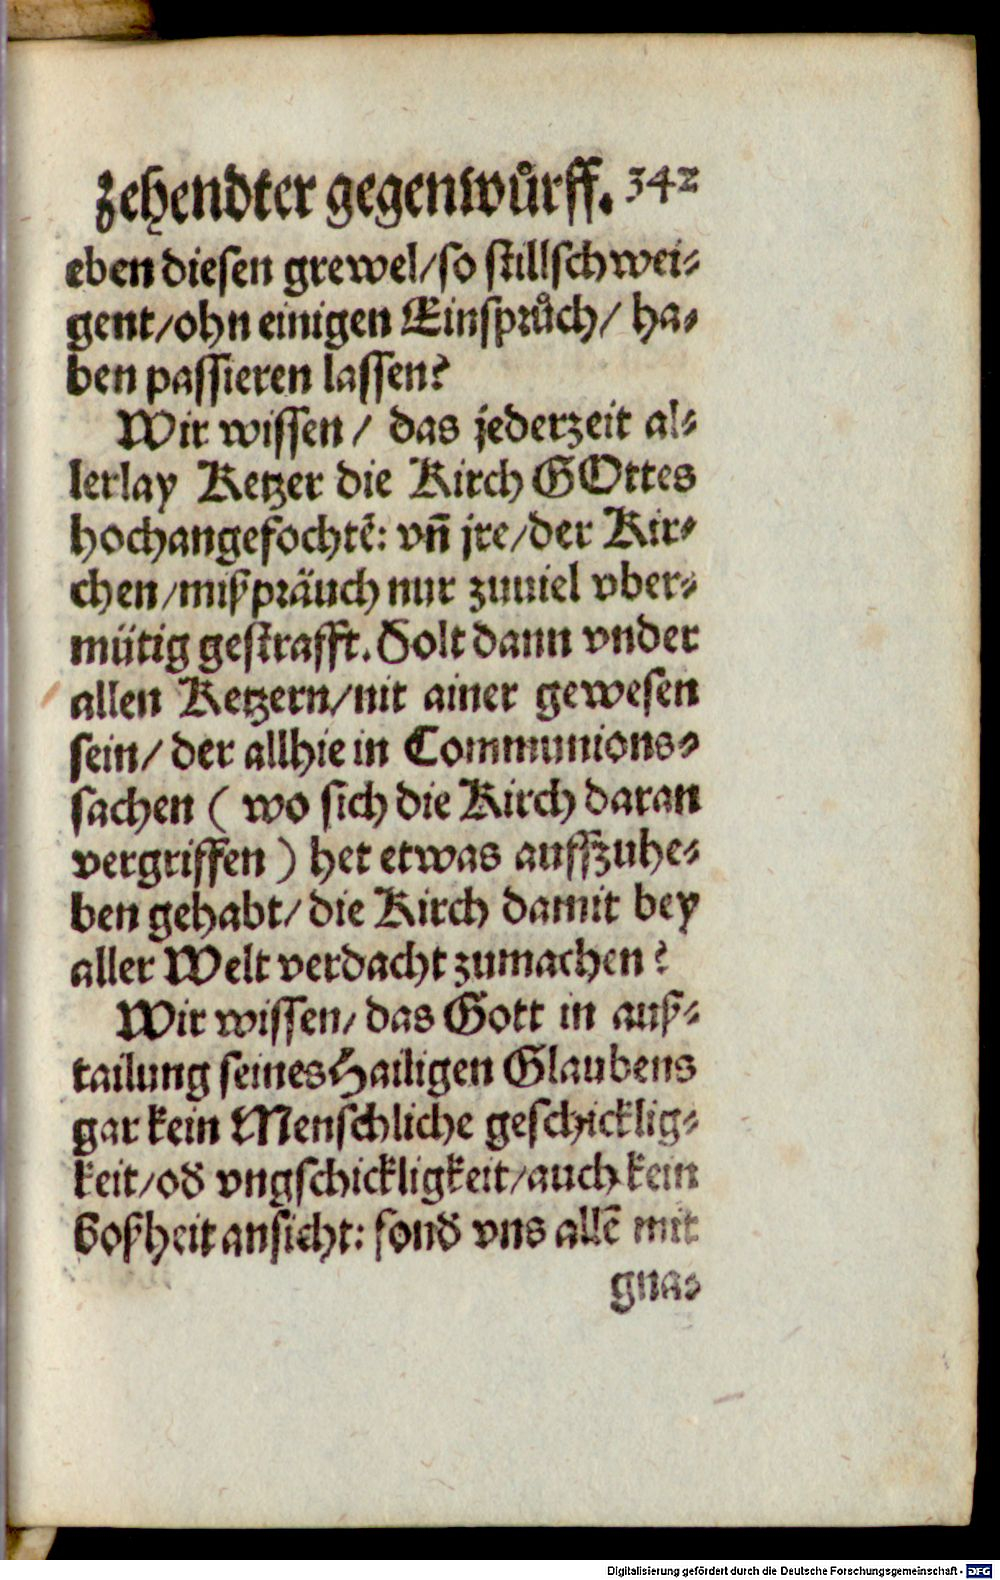 Zehendter gegenwuͤrff. 342
eben diesen grewel/so stillschwei-
gent/ohn einigen Einspruͤch/ ha-
ben passieren lassen?
Wir wissen/ das jederzeit al-
lerlay Ketzer die Kirch GOttes
hochangefochtē: vn̄ jre/der Kir-
chen/mißpräuch nur zuuiel vber-
mütig gestrafft. Solt dann vnder
allen Ketzern/nit ainer gewesen
sein/ der allhie in Communions-
sachen ( wo sich die Kirch daran
vergriffen ) het etwas auffzuhe-
ben gehabt/ die Kirch damit bey
aller Welt verdacht zumachen?
Wir wissen/ das Gott in auß-
tailung seines Hailigen Glaubens
gar kein Menschliche geschicklig-
keit/od̄ vngschickligkeit/auch kein
Boßheit ansicht: sond̄ vns allē mit
gna-
Digitalisierung gefördert durch die Deutsche Forschungsgemeinschaft - DFG